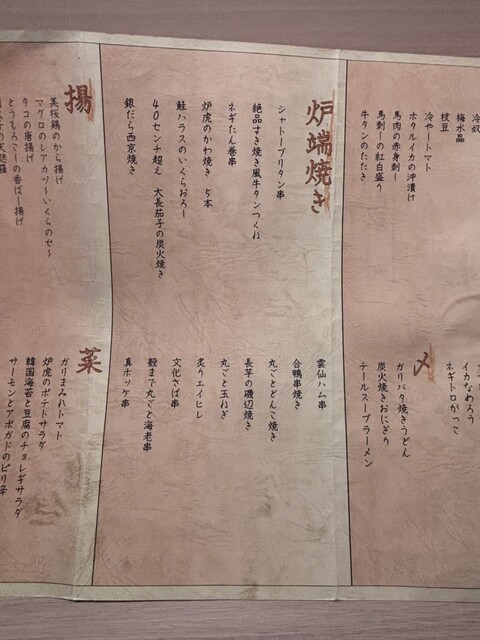 冷奴
梅水晶
枝豆
冷やしトマト
ホタルイカの沖漬け
馬肉の赤身刺し
馬刺しの紅白盛り
牛タンのたたき
イカなめろう
ネギトロがっこ
〆
ガリバタ焼きうどん
炭火焼きおにぎり
テールスープラーメン
炉端焼き
シャトーブリアン串
絶品すき焼き風牛タンつくね
ネギたん巻串
炉虎のかわ焼き 5本
鮭ハラスのいくらおろし
40センチ超え 大長茄子の炭火焼き
銀だら西京焼き
雲仙ハム串
合鴨串焼き
丸ごとどんこ焼き
長芋の磯辺焼き
丸ごと玉ねぎ
炙りエイヒレ
文化さば串
殻まで丸ごと海老串
真ホッケ串
揚
美桜鶏のから揚げ
マグロのレアカツ〜いくらのせ〜
タコの唐揚げ
とうもろこしの香ばし揚げ
菜
ガリまみれトマト
炉虎のポテトサラダ
韓国海苔と豆腐のチョレギサラダ
サーモンとアボガドのピリ辛